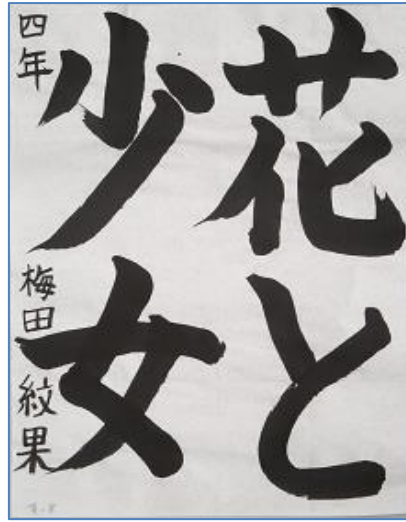 花と
少女
四年 梅田 紋果